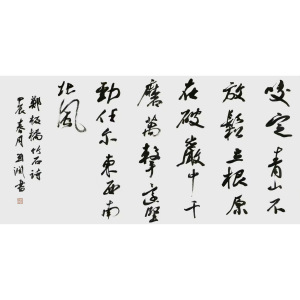 咬定青山不
放鬆立根原
在破巖中千
磨萬擊還堅
勁任尔東西南
北風
鄭板橋竹石詩
甲辰春月潤書